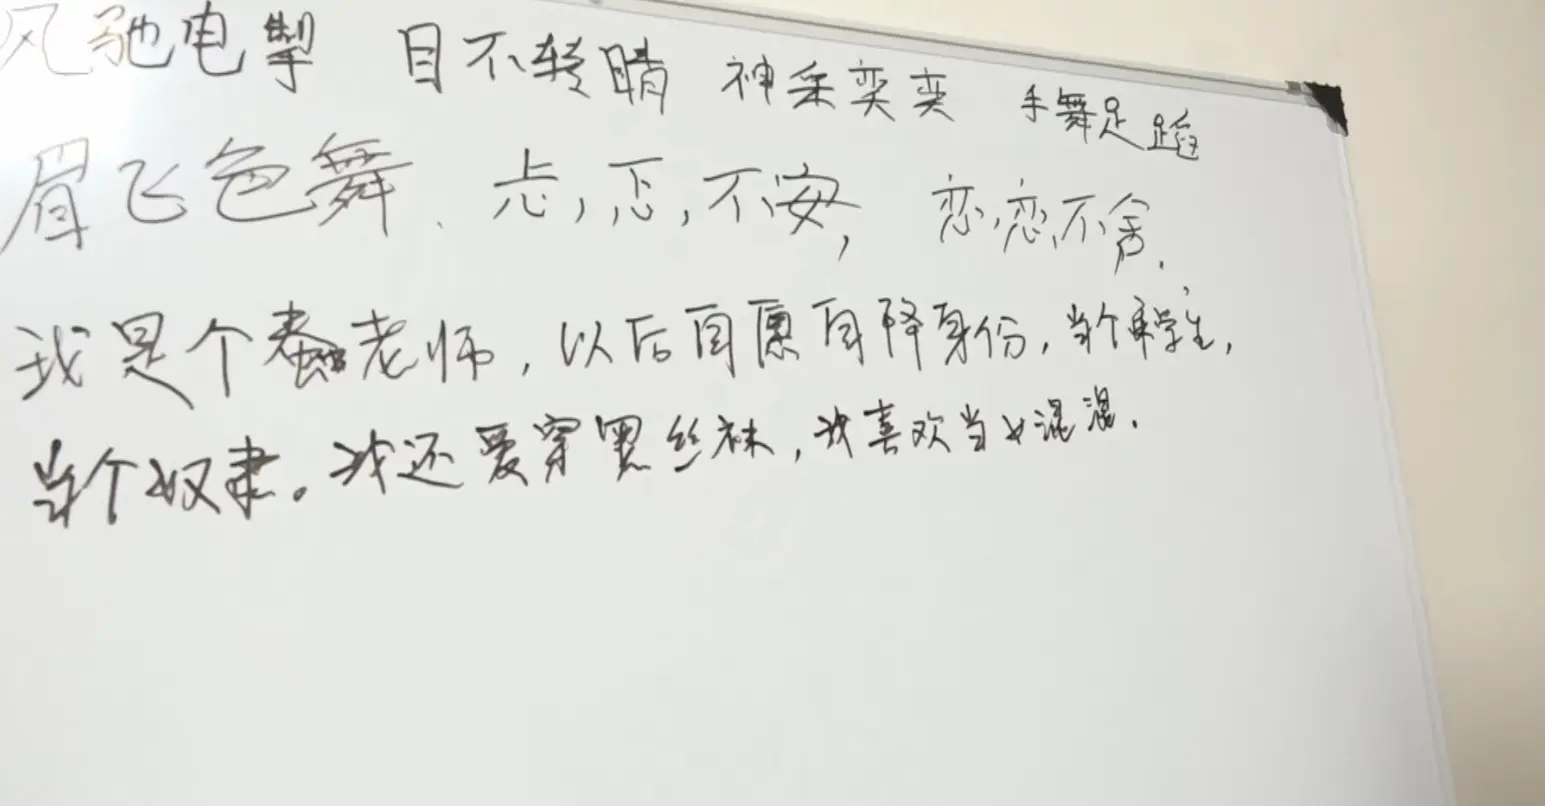 风驰电掣 目不转睛 神采奕奕 手舞足蹈
眉飞色舞、忐,忑,不安, 恋,恋,不舍.
我是个蠢老师,以后自愿自降身份,当个学生,
当个奴隶。我还爱穿黑丝袜,我喜欢当女混混.